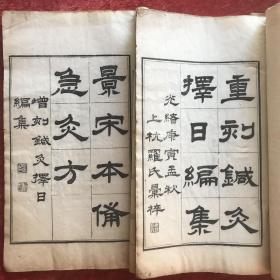 重刻鍼灸
擇日編集
光緒庚寅孟秋
上杭羅氏彙梓
景宋本備
急灸方
增刻鍼灸擇日
編集